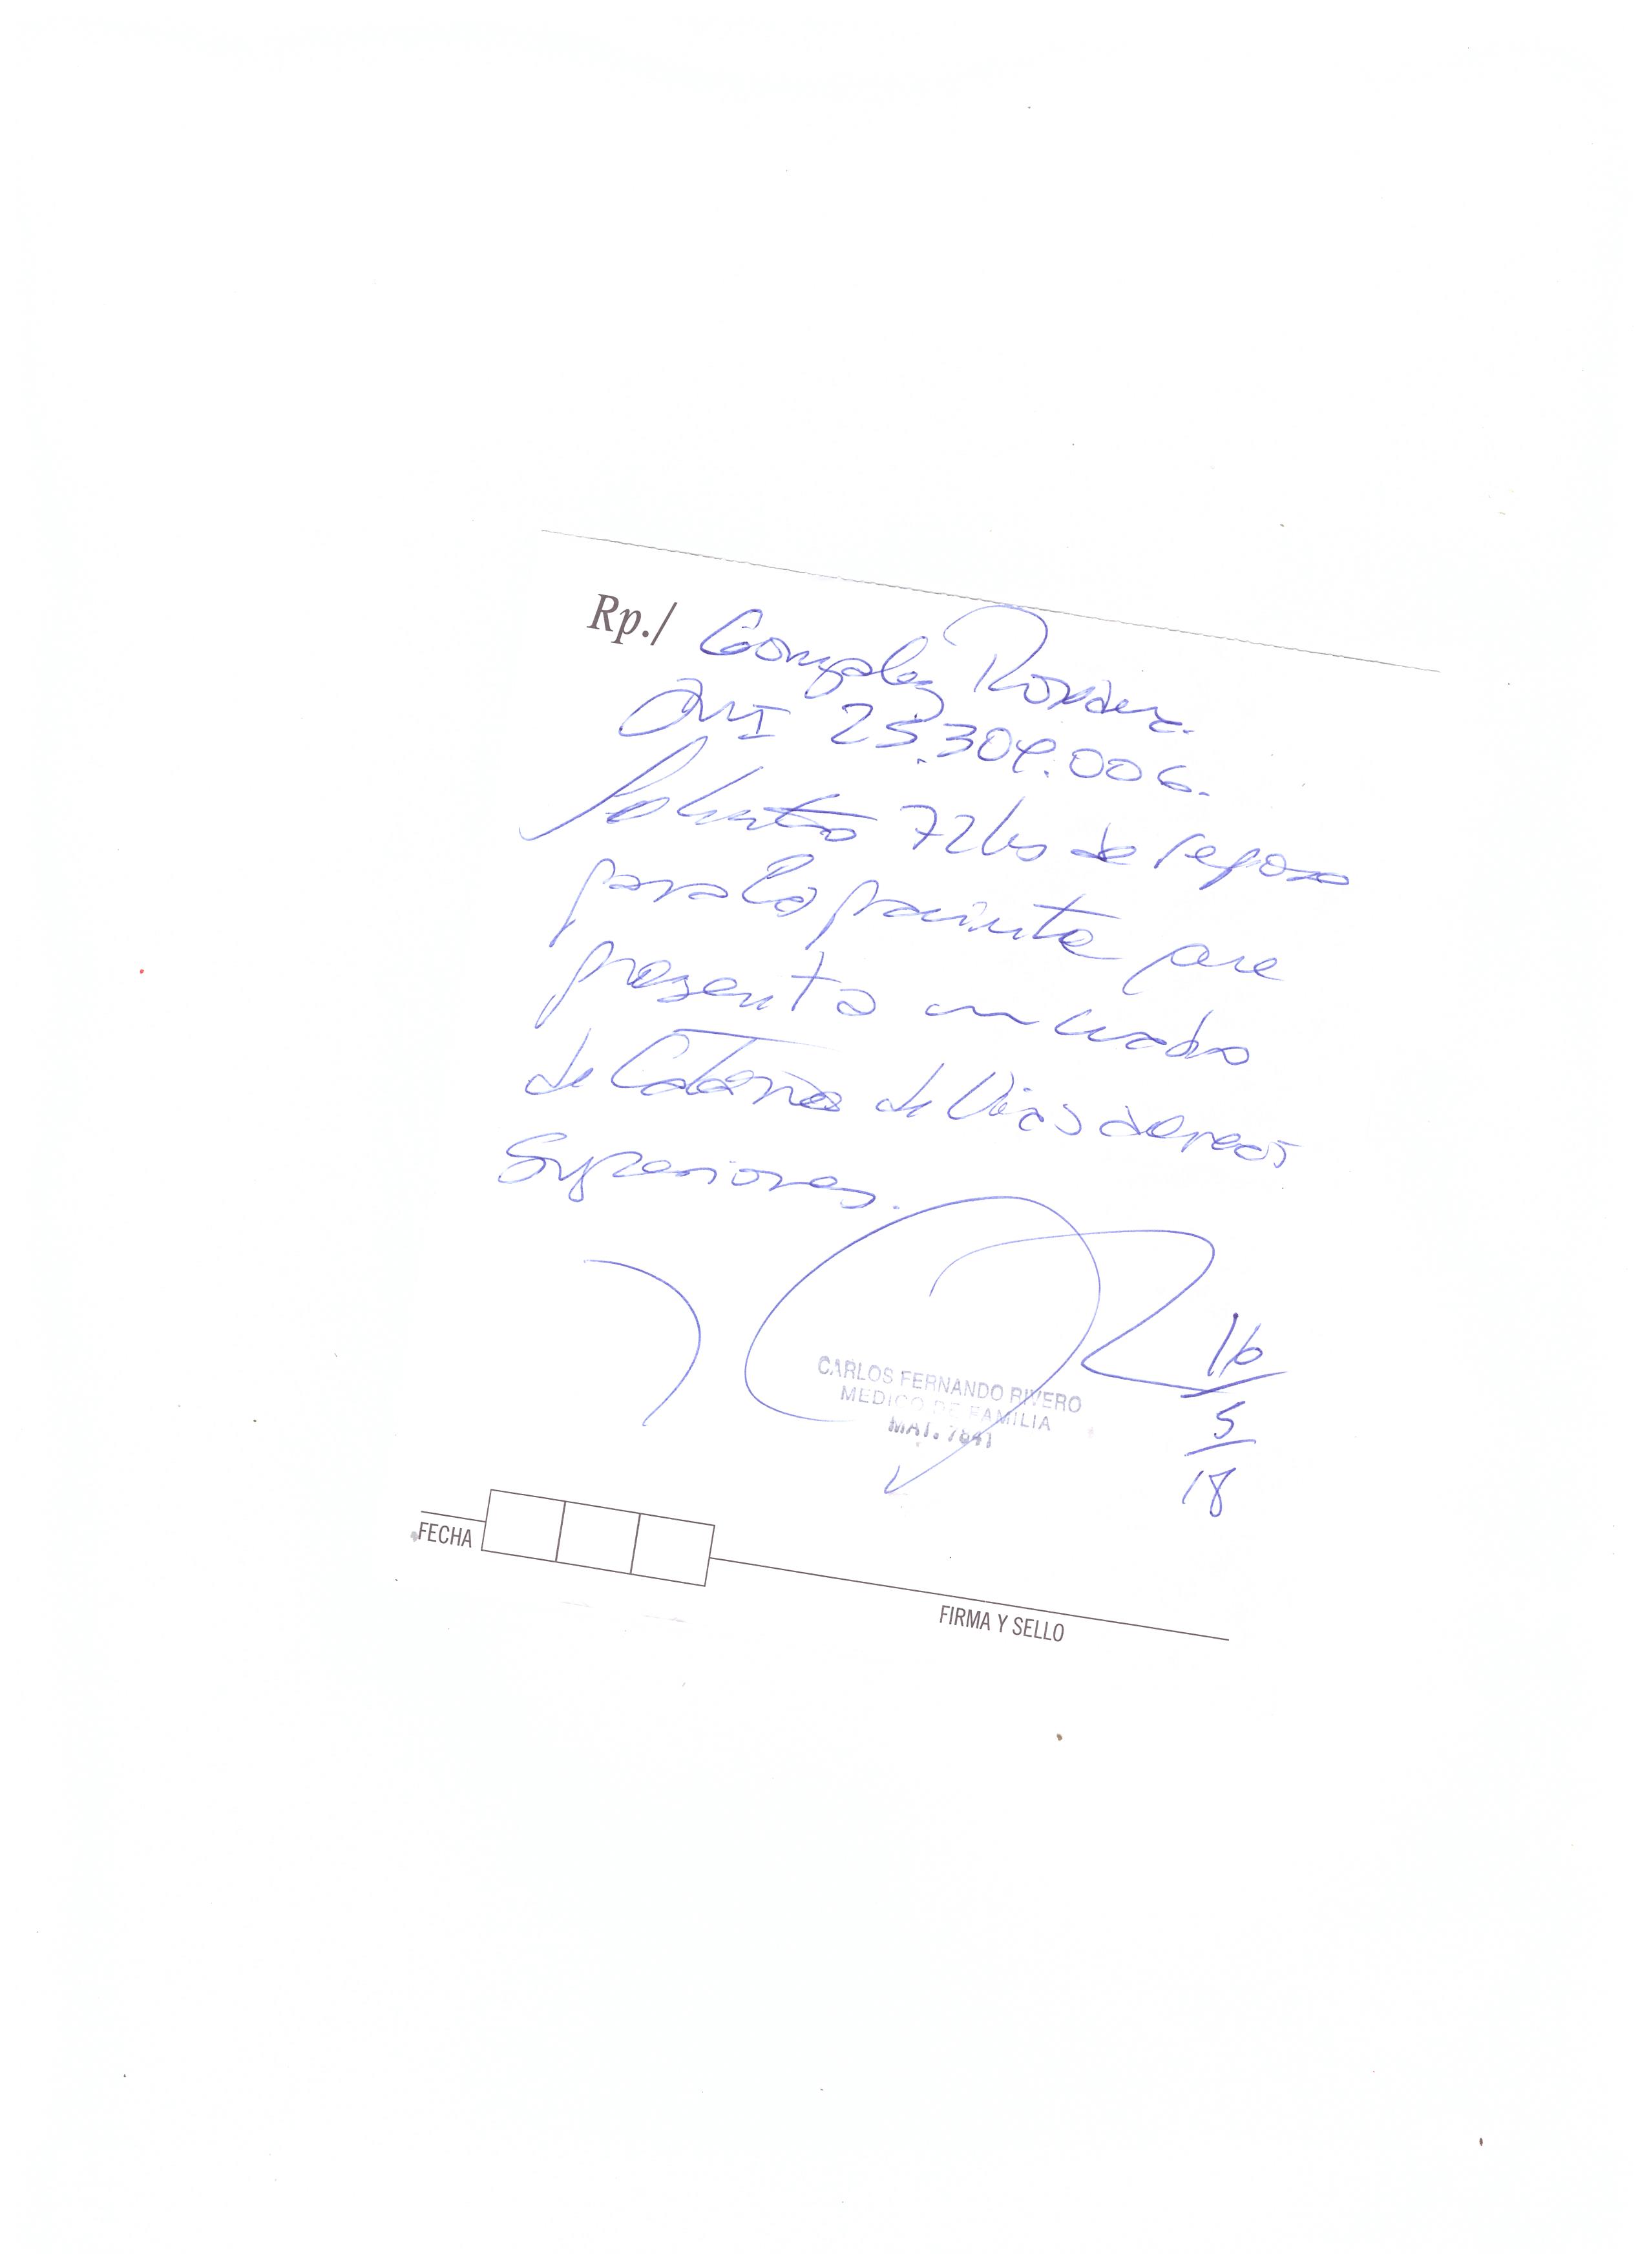 Rp./ Gonzalez
DNI 25.304.006.
Solicito 72hs de reposo
para la paciente que
presenta un cuadro
de Catarro de Vias aereas
Superiores.
CARLOS FERNANDO RIVERO
MEDICO DE FAMILIA
MAT. 7841
16
5
18
FECHA
FIRMA Y SELLO